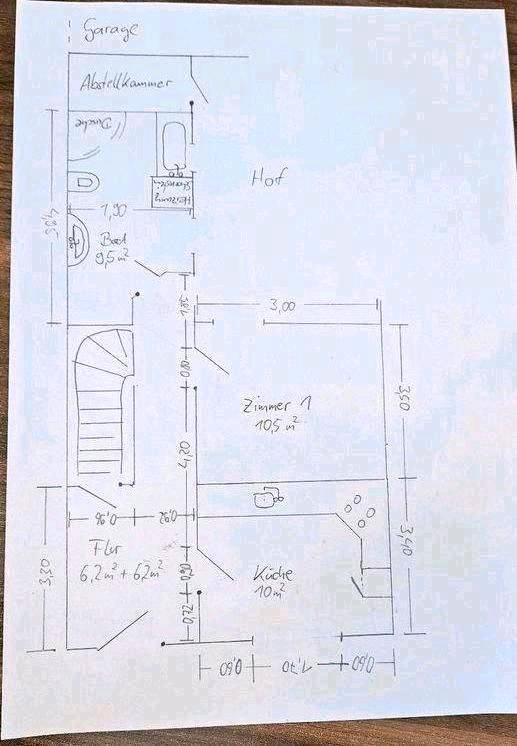 Garage
Abstellkammer
Dusche
Hof
Heizung
4,85
1,90
Bad
9,5 m²
1,85
3,00
0,80
Zimmer 1
10,5 m²
3,50
4,20
0,96
0,92
Flur
6,2 m² + 6,2 m²
3,30
0,90
Küche
10 m²
3,40
0,72
0,60
1,70
0,60